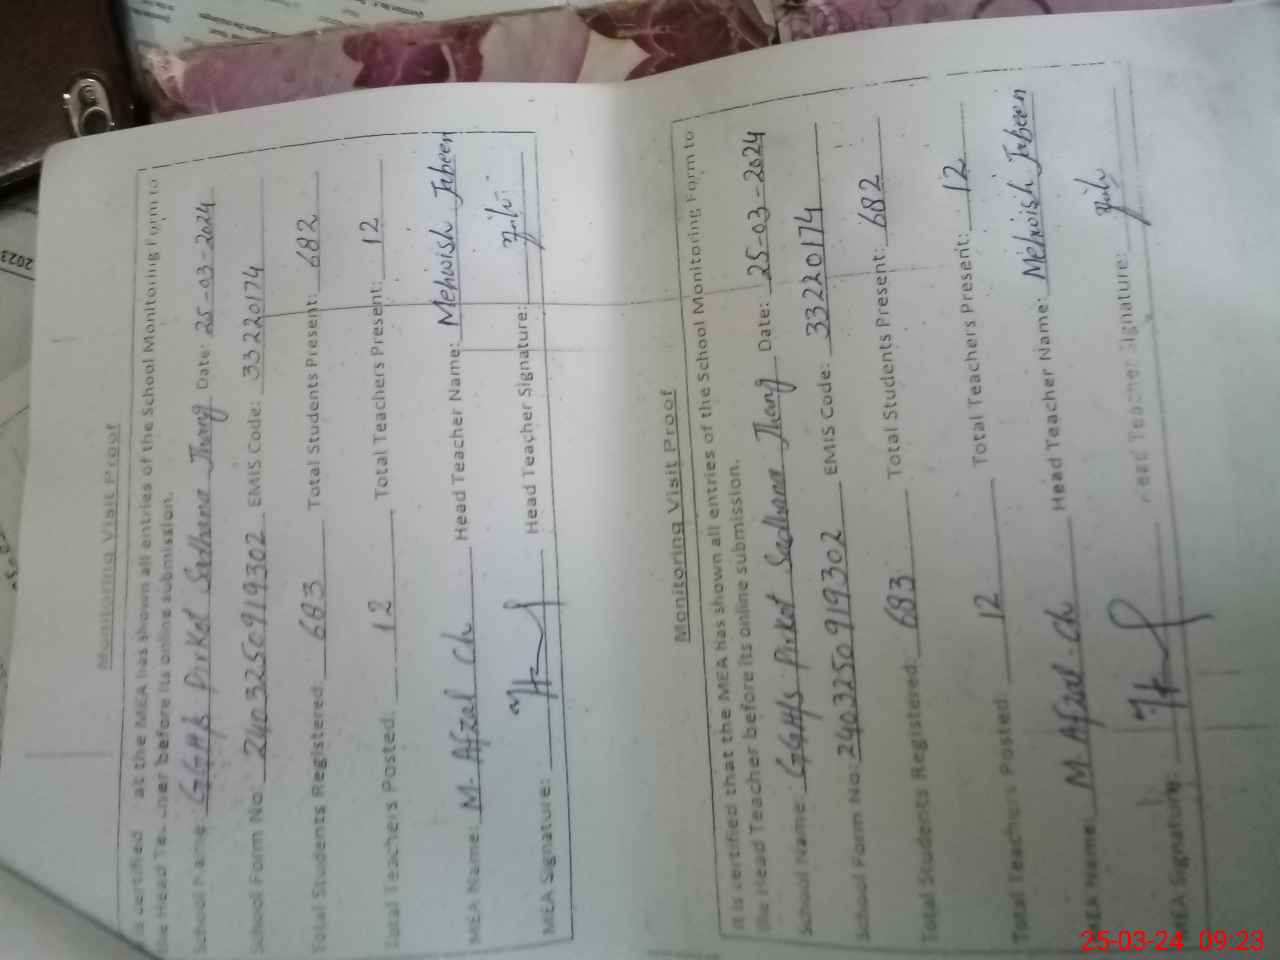 Monitoring Visit Proof
is certified at the MEA has shown all entries of the School Monitoring Form to
the Head Teacher before its online submission.
School Name: GGHS Pirkot Sadhana Jhang Date: 25-03-2024
School Form No: 2403250919302 EMIS Code: 33220174
Total Students Registered: 683 Total Students Present: 682
Total Teachers Posted: 12 Total Teachers Present: 12
MEA Name: M. Afzal Ch Head Teacher Name: Mehwish Jabeen
MEA Signature: Head Teacher Signature:
Monitoring Visit Proof
It is certified that the MEA has shown all entries of the School Monitoring Form to
the Head Teacher before its online submission.
School Name: GGHS Pirkot Sadhana Jhang Date: 25-03-2024
School Form No: 2403250919302 EMIS Code: 33220174
Total Students Registered: 683 Total Students Present: 682
Total Teachers Posted: 12 Total Teachers Present: 12
MEA Name: M. Afzal Ch Head Teacher Name: Mehwish Jabeen
MEA Signature: Head Teacher Signature:
2023
25-03-24 09:23